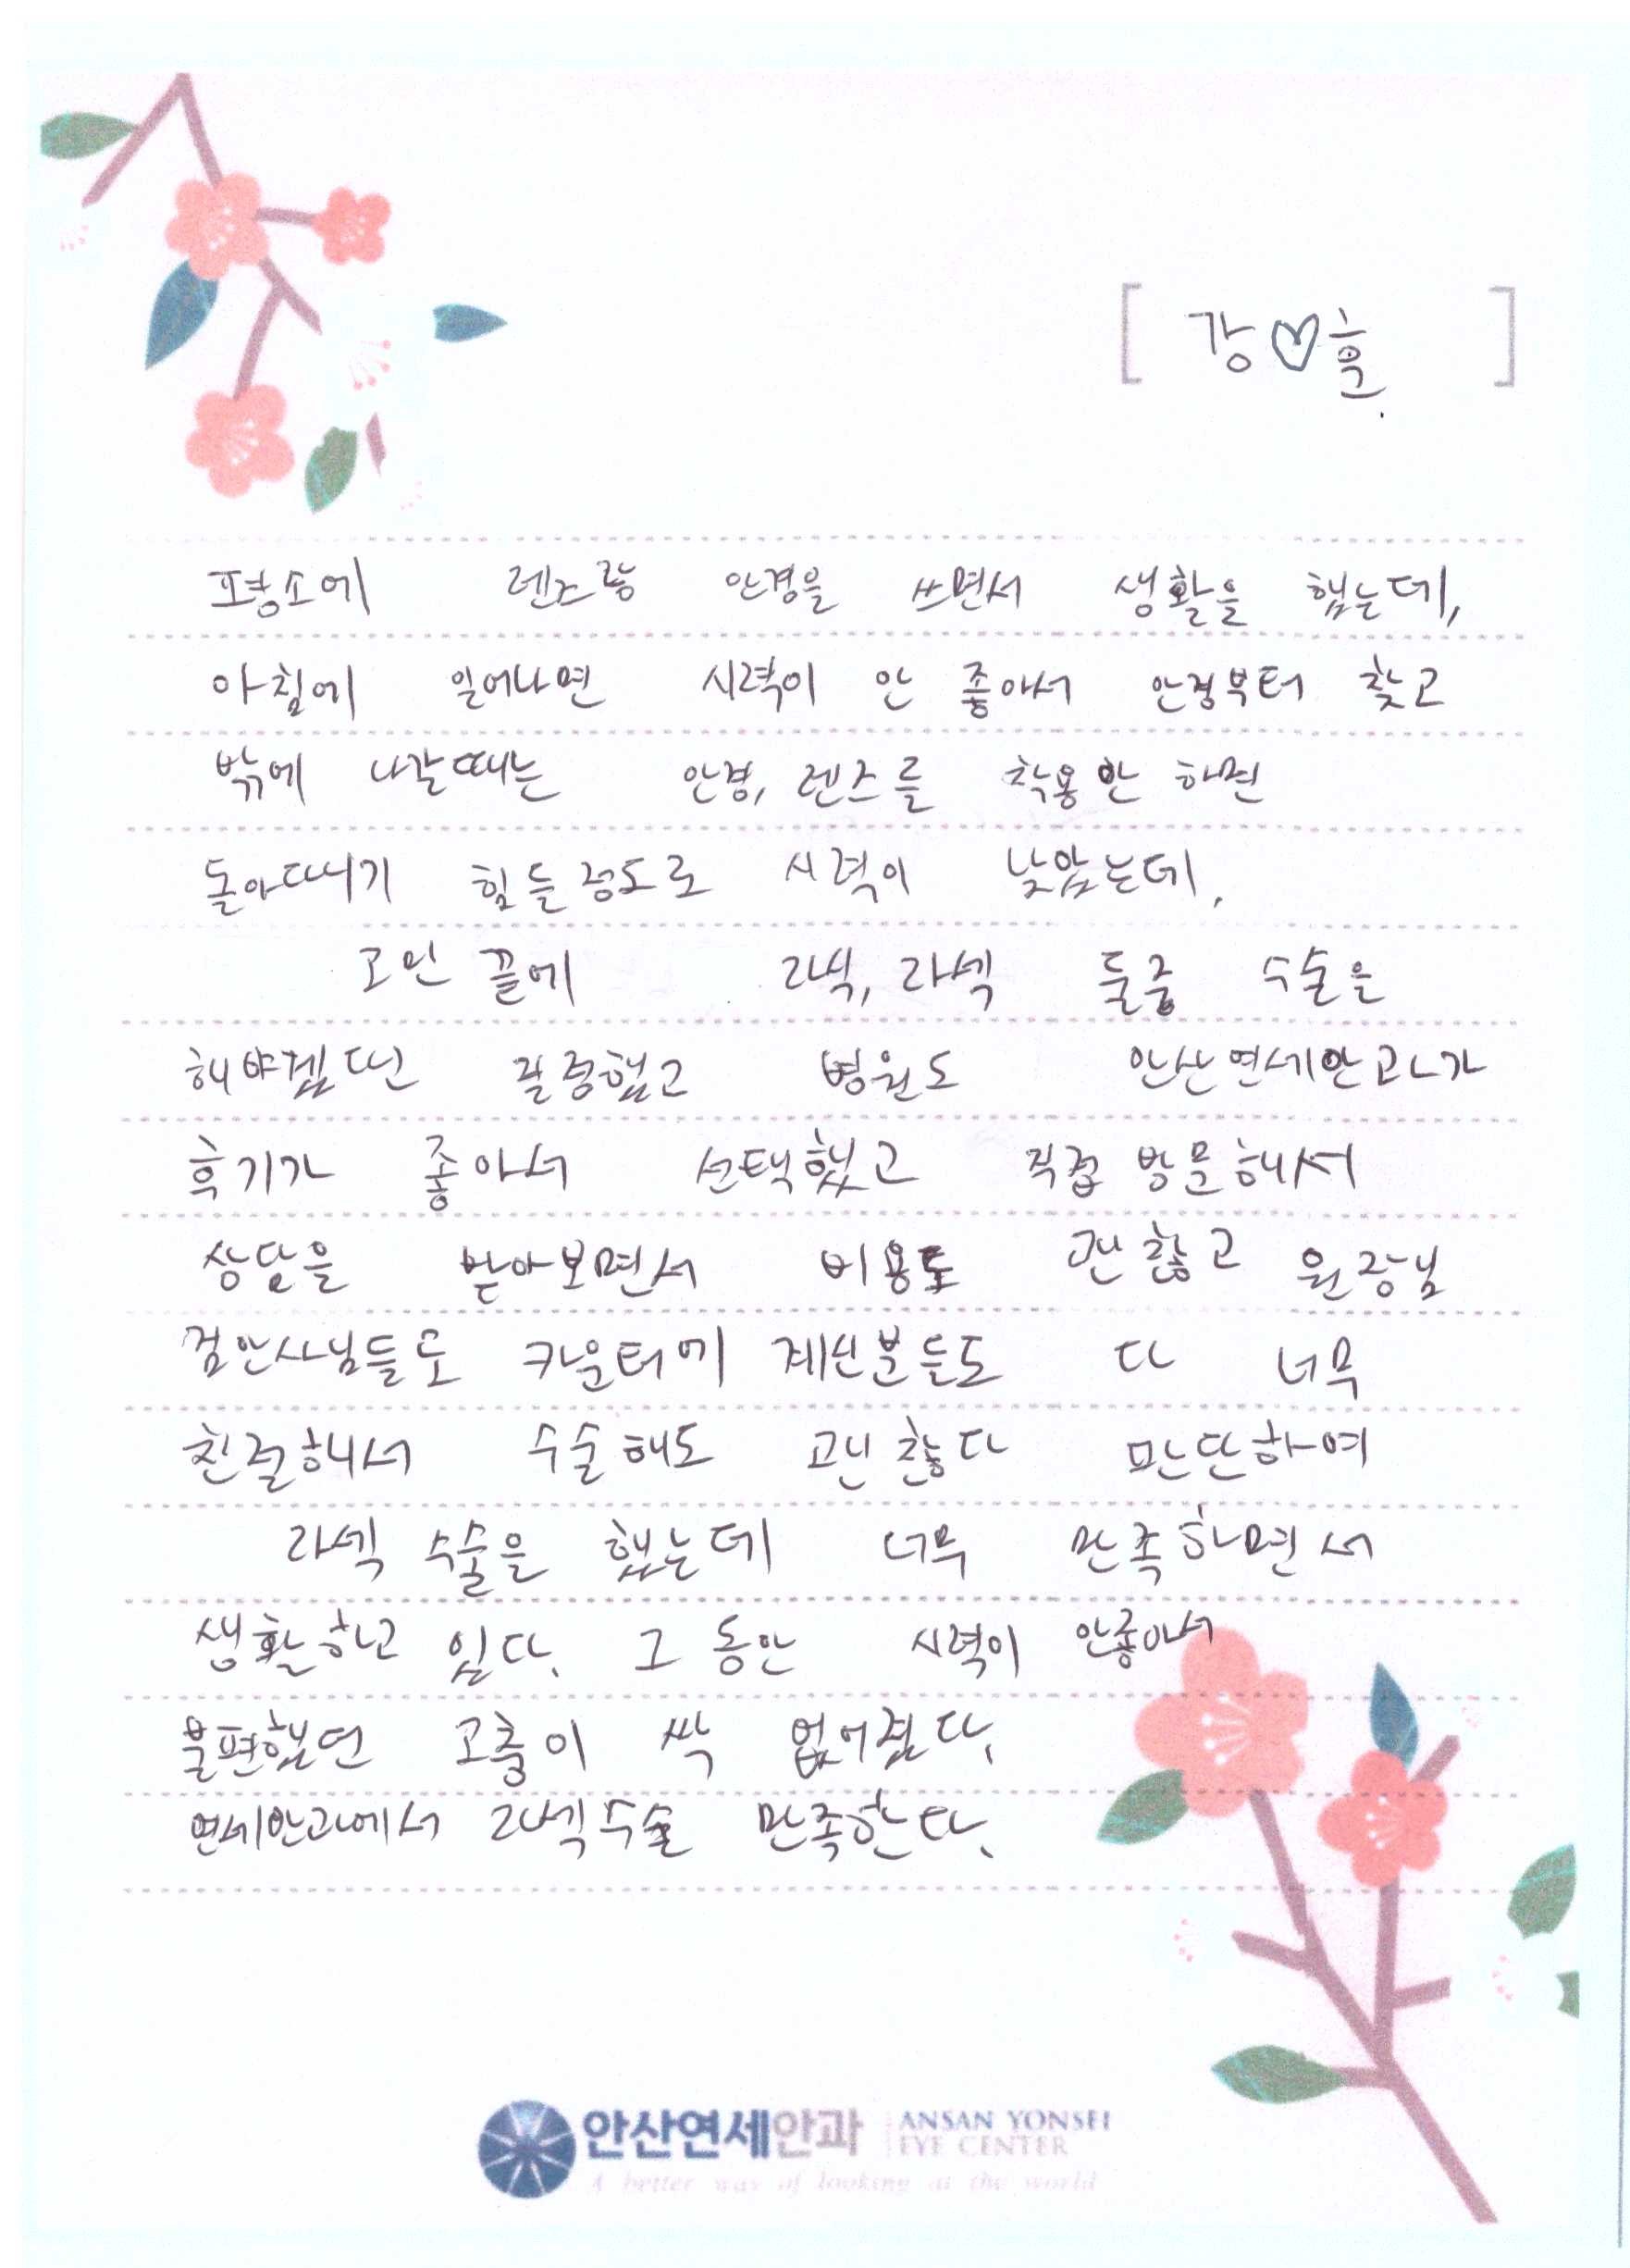 [ 강♡훈 ]
평소에 렌즈랑 안경을 쓰면서 생활을 했는데,
아침에 일어나면 시력이 안 좋아서 안경부터 찾고
밖에 나갈때는 안경, 렌즈를 착용 안 하면
돌아다니기 힘들정도로 시력이 낮았는데,
고민 끝에 라식, 라섹 둘중 수술은
해야겠단 결정했고 병원도 안산연세안과가
후기가 좋아서 선택했고 직접 방문해서
상담을 받아보면서 비용도 괜찮고 원장님
검안사님들도 카운터에 계신분들도 다 너무
친절해서 수술해도 괜찮다 판단하여
라섹 수술을 했는데 너무 만족하면서
생활하고 있다. 그 동안 시력이 안좋아서
불편했던 고충이 싹 없어졌다.
연세안과에서 라섹수술 만족한다.
안산연세안과 ANSAN YONSEI
EYE CENTER
A better way of looking at the world